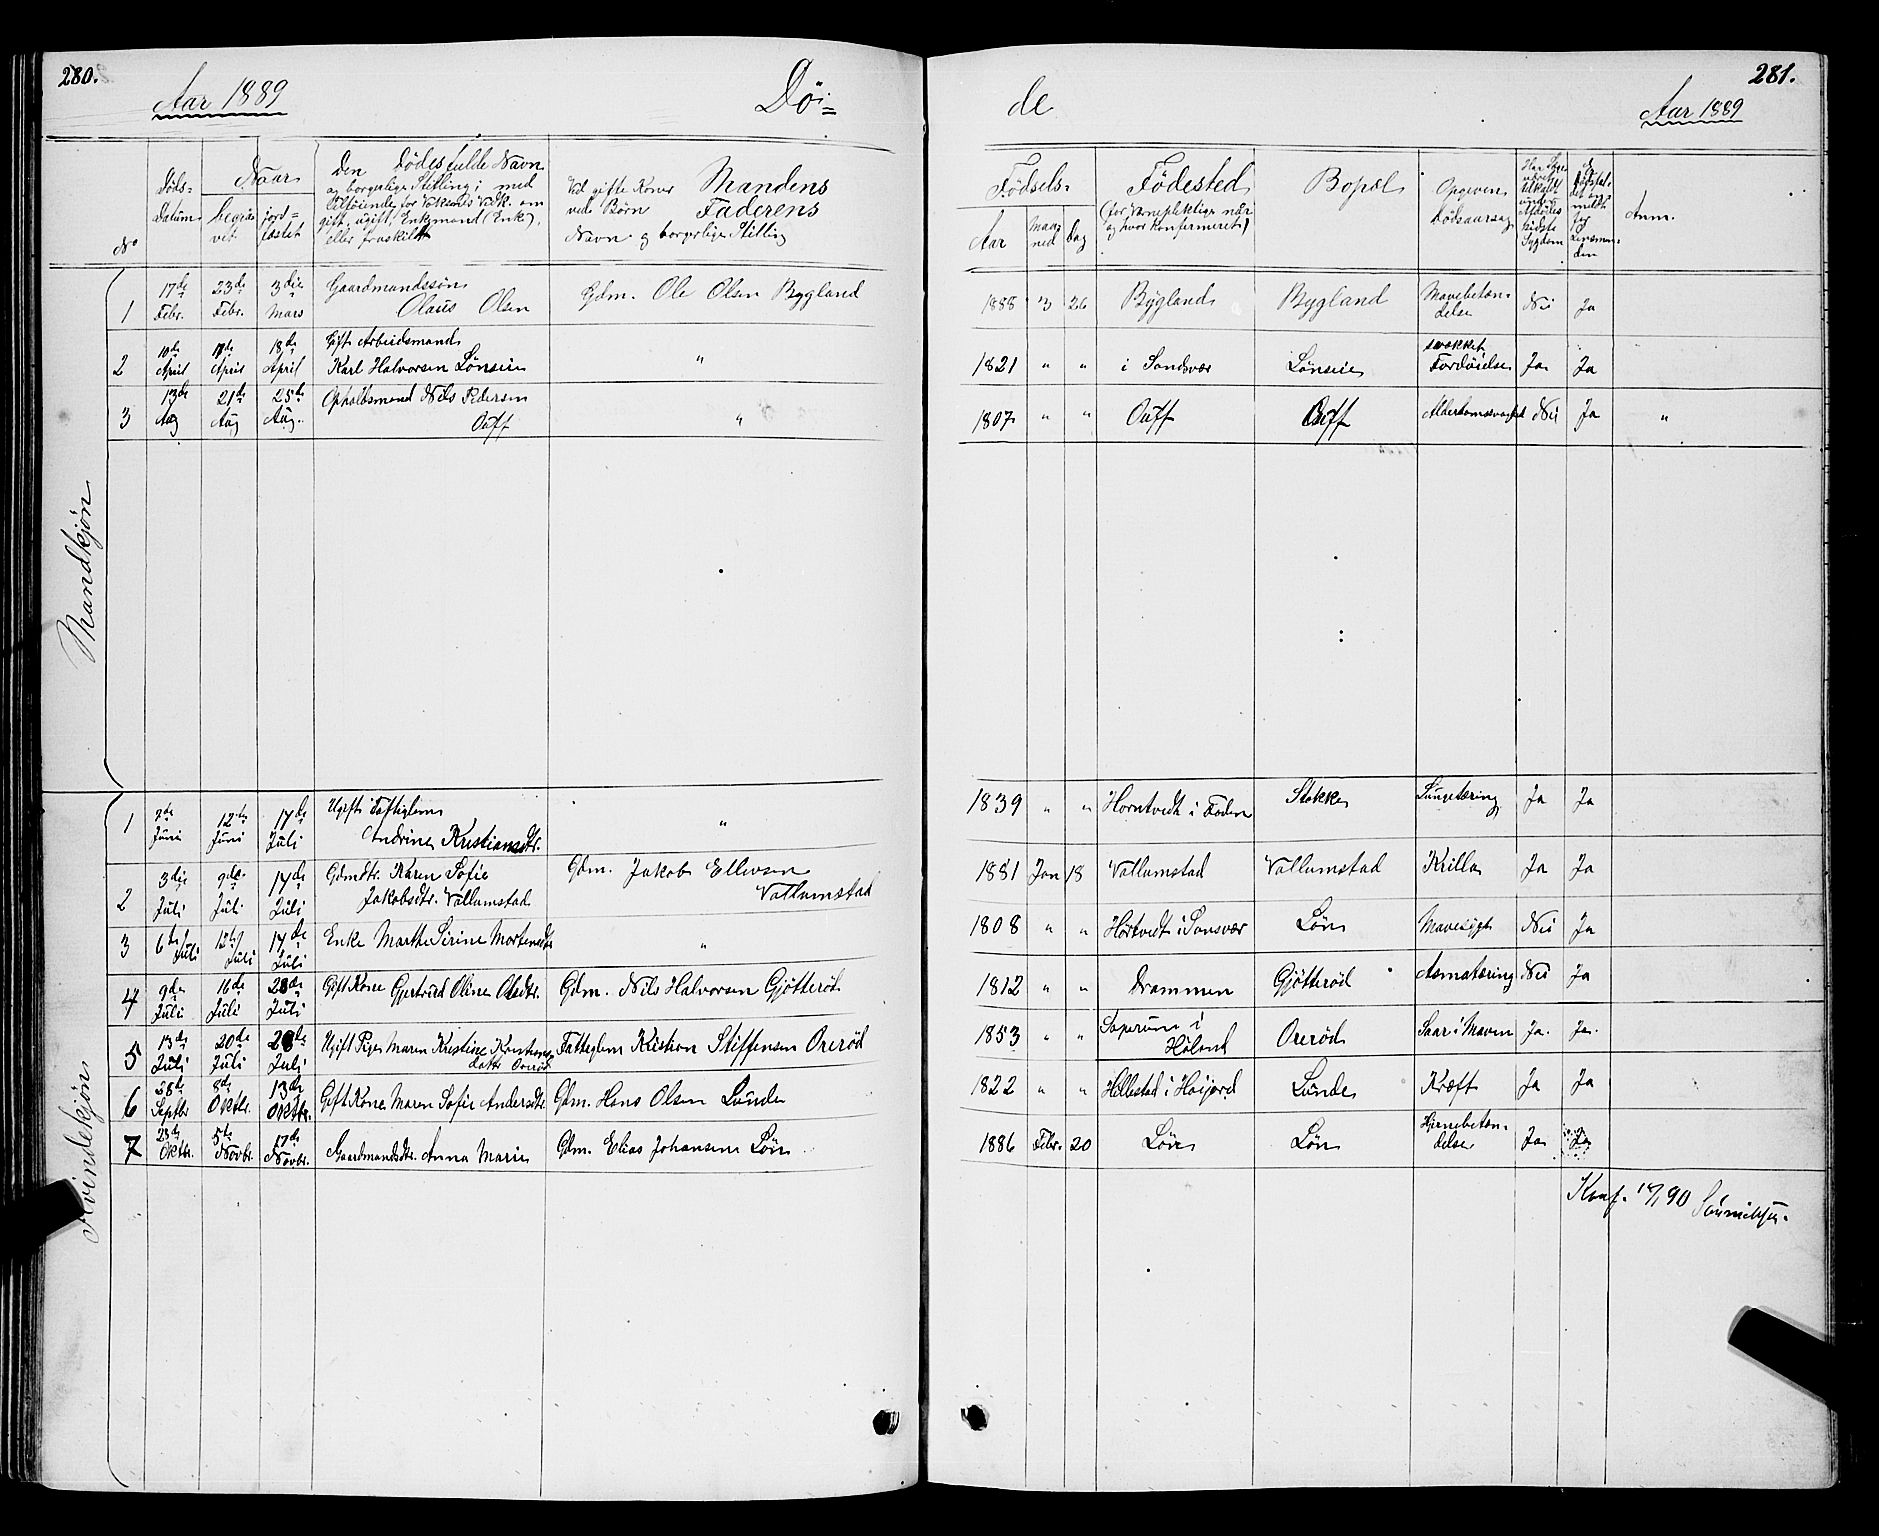 280.
Aar 1889
Dø=
de
281.
Aar 1889
No
Døds-
Datum
Naar
begra-
vet
jord=
fæstet
Den Dødes fulde Navn
og borgerlige Stilling; med
Tilføiende for Voksnes Vedk. om
gift, ugift, Enkemand (Enke),
eller fraskilt
Ved gifte Koner Mandens
ved Børn Faderens
Navn og borgerlige Stilling
Fødsels-
Aar
Maa-
ned
Dag
Fødested
(for Værnepligtige når
og hvor konfirmeret)
Bopæl
Opgiven
Dødsaarsag
Anm.
Mandkjøn
1 17de Febr. 23de Febr. 3die Mars Gaardmandssøn
Olaus Olsen Gdm. Ole Olsen Bygland 1888 3 26 Bygland Bygland Mavebetæn-
delse Nei Ja
2 10de April 17de April 18de April Gift Arbeidsmand
Karl Halvorsen Lønseie " 1821 " " i Sandsvær Lønseie svækket
Fordøielse Ja Ja
3 13de Aug 21de Aug 25de Aug. Opholdsmand Nils Pedersen
Ouff " 1807 " " Ouff Ouff Alderdomssvaghed Nei Ja "
Kvindekjøn
1 7de Juni 12te Juni 17de Juli Ugift Fattiglem
Andrine Kristiansdtr. " 1839 " " Horntvedt i Stokke Lungetæring Ja Ja
2 3die Juli 9de Juli 17de Juli Gdmdtr. Karen Sofie
Jakobsdtr. Vallumstad Gdm. Jakob Ellevsen
Vallumstad 1881 Jan 18 Vallumstad Vallumstad Krilla Ja Ja
3 6te Juli 12te Juli 17de Juli Enke Marthe Sirine Mortensdtr " 1808 " " Hortvedt i Sansvær Løn Mavesygd Nei Ja
4 9de Juli 16de Juli 28de Juli Gift Kone Gjertrud Oline Olsdtr. Gdm. Nils Halvorsen Gjøtterød 1812 " " Drammen Gjøtterød Asmatæring Nei Ja
5 13de Juli 20de Juli 28de Juli Ugift Pige Maren Kristine Kristians
datter Orerød Fatteglem Kristian Stiffensen Orerød 1853 " " i
Høland Orerød Saar i Maven Ja. Ja.
6 28de Septbr 8de Oktbr. 13de Oktbr. Gift Kone Maren Sofie Andersdtr. Gdm. Hans Olsen Lunde 1822 " " Hellestad i Høijord Lunde Kræft Ja Ja
7 23de Oktbr. 5te Novbr. 17de Novbr. Gaardmandsdtr. Anna Marie Gdm. Elias Johansen Løn 1886 Febr. 20 Løn Løn Hjernebetæn-
delse Ja Ja
Konf.